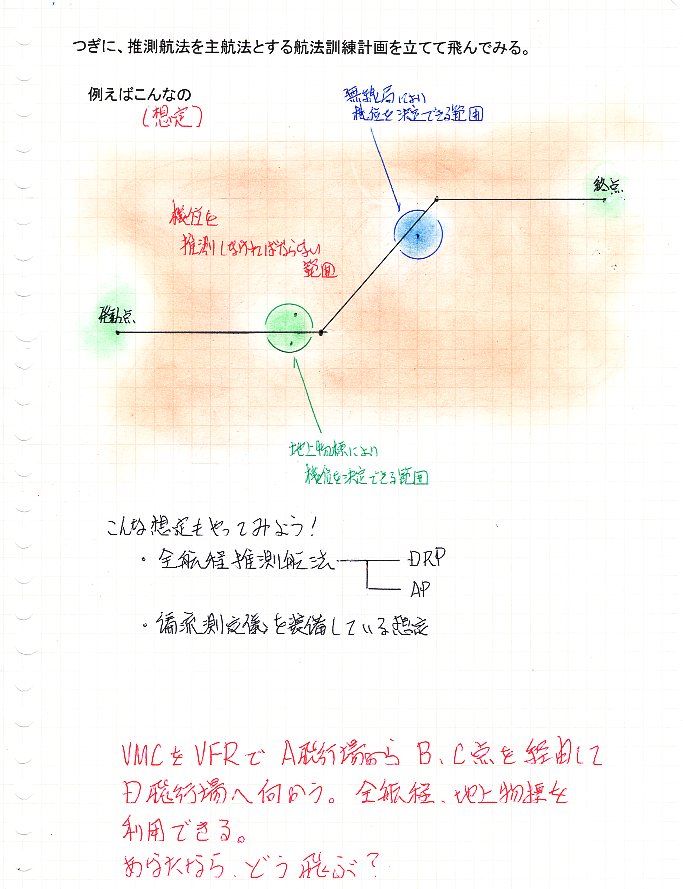 つぎに、推測航法を主航法とする航法訓練計画を立てて飛んでみる。
例えばこんなの
(想定)
無線局により
機位を決定できる範囲
終点
機位を
推測しなければならない
範囲
発動点
地上物標により
機位を決定できる範囲
こんな想定もやってみよう!
・全航程推測航法 DRP
AP
・偏流測定儀を装備している想定
VMCをVFRで A飛行場から B、C点を経由して
D飛行場へ向かう。全航程、地上物標を
利用できる。
あなたなら、どう飛ぶ?